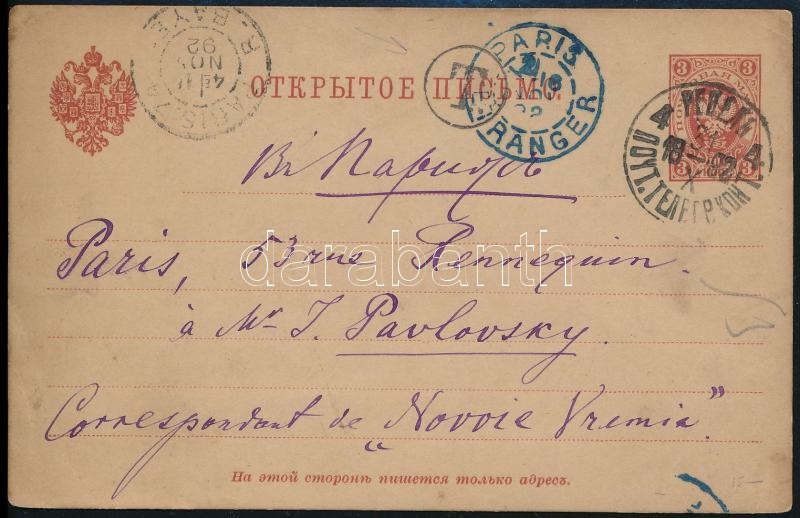 ОТКРЫТОЕ ПИСЬМО.
PARIS
RANGER
PARIS
NOV
92
3
3
3
T
4 4
18 92
ПОЧТ. ТЕЛЕГР. КОНТ.
Въ Парижъ
Paris, 53 rue Rennequin.
à Mr J. Pavlovsky.
Correspondant de „Novoïe Vremia”
На этой сторонѣ пишется только адресъ.
darabanth